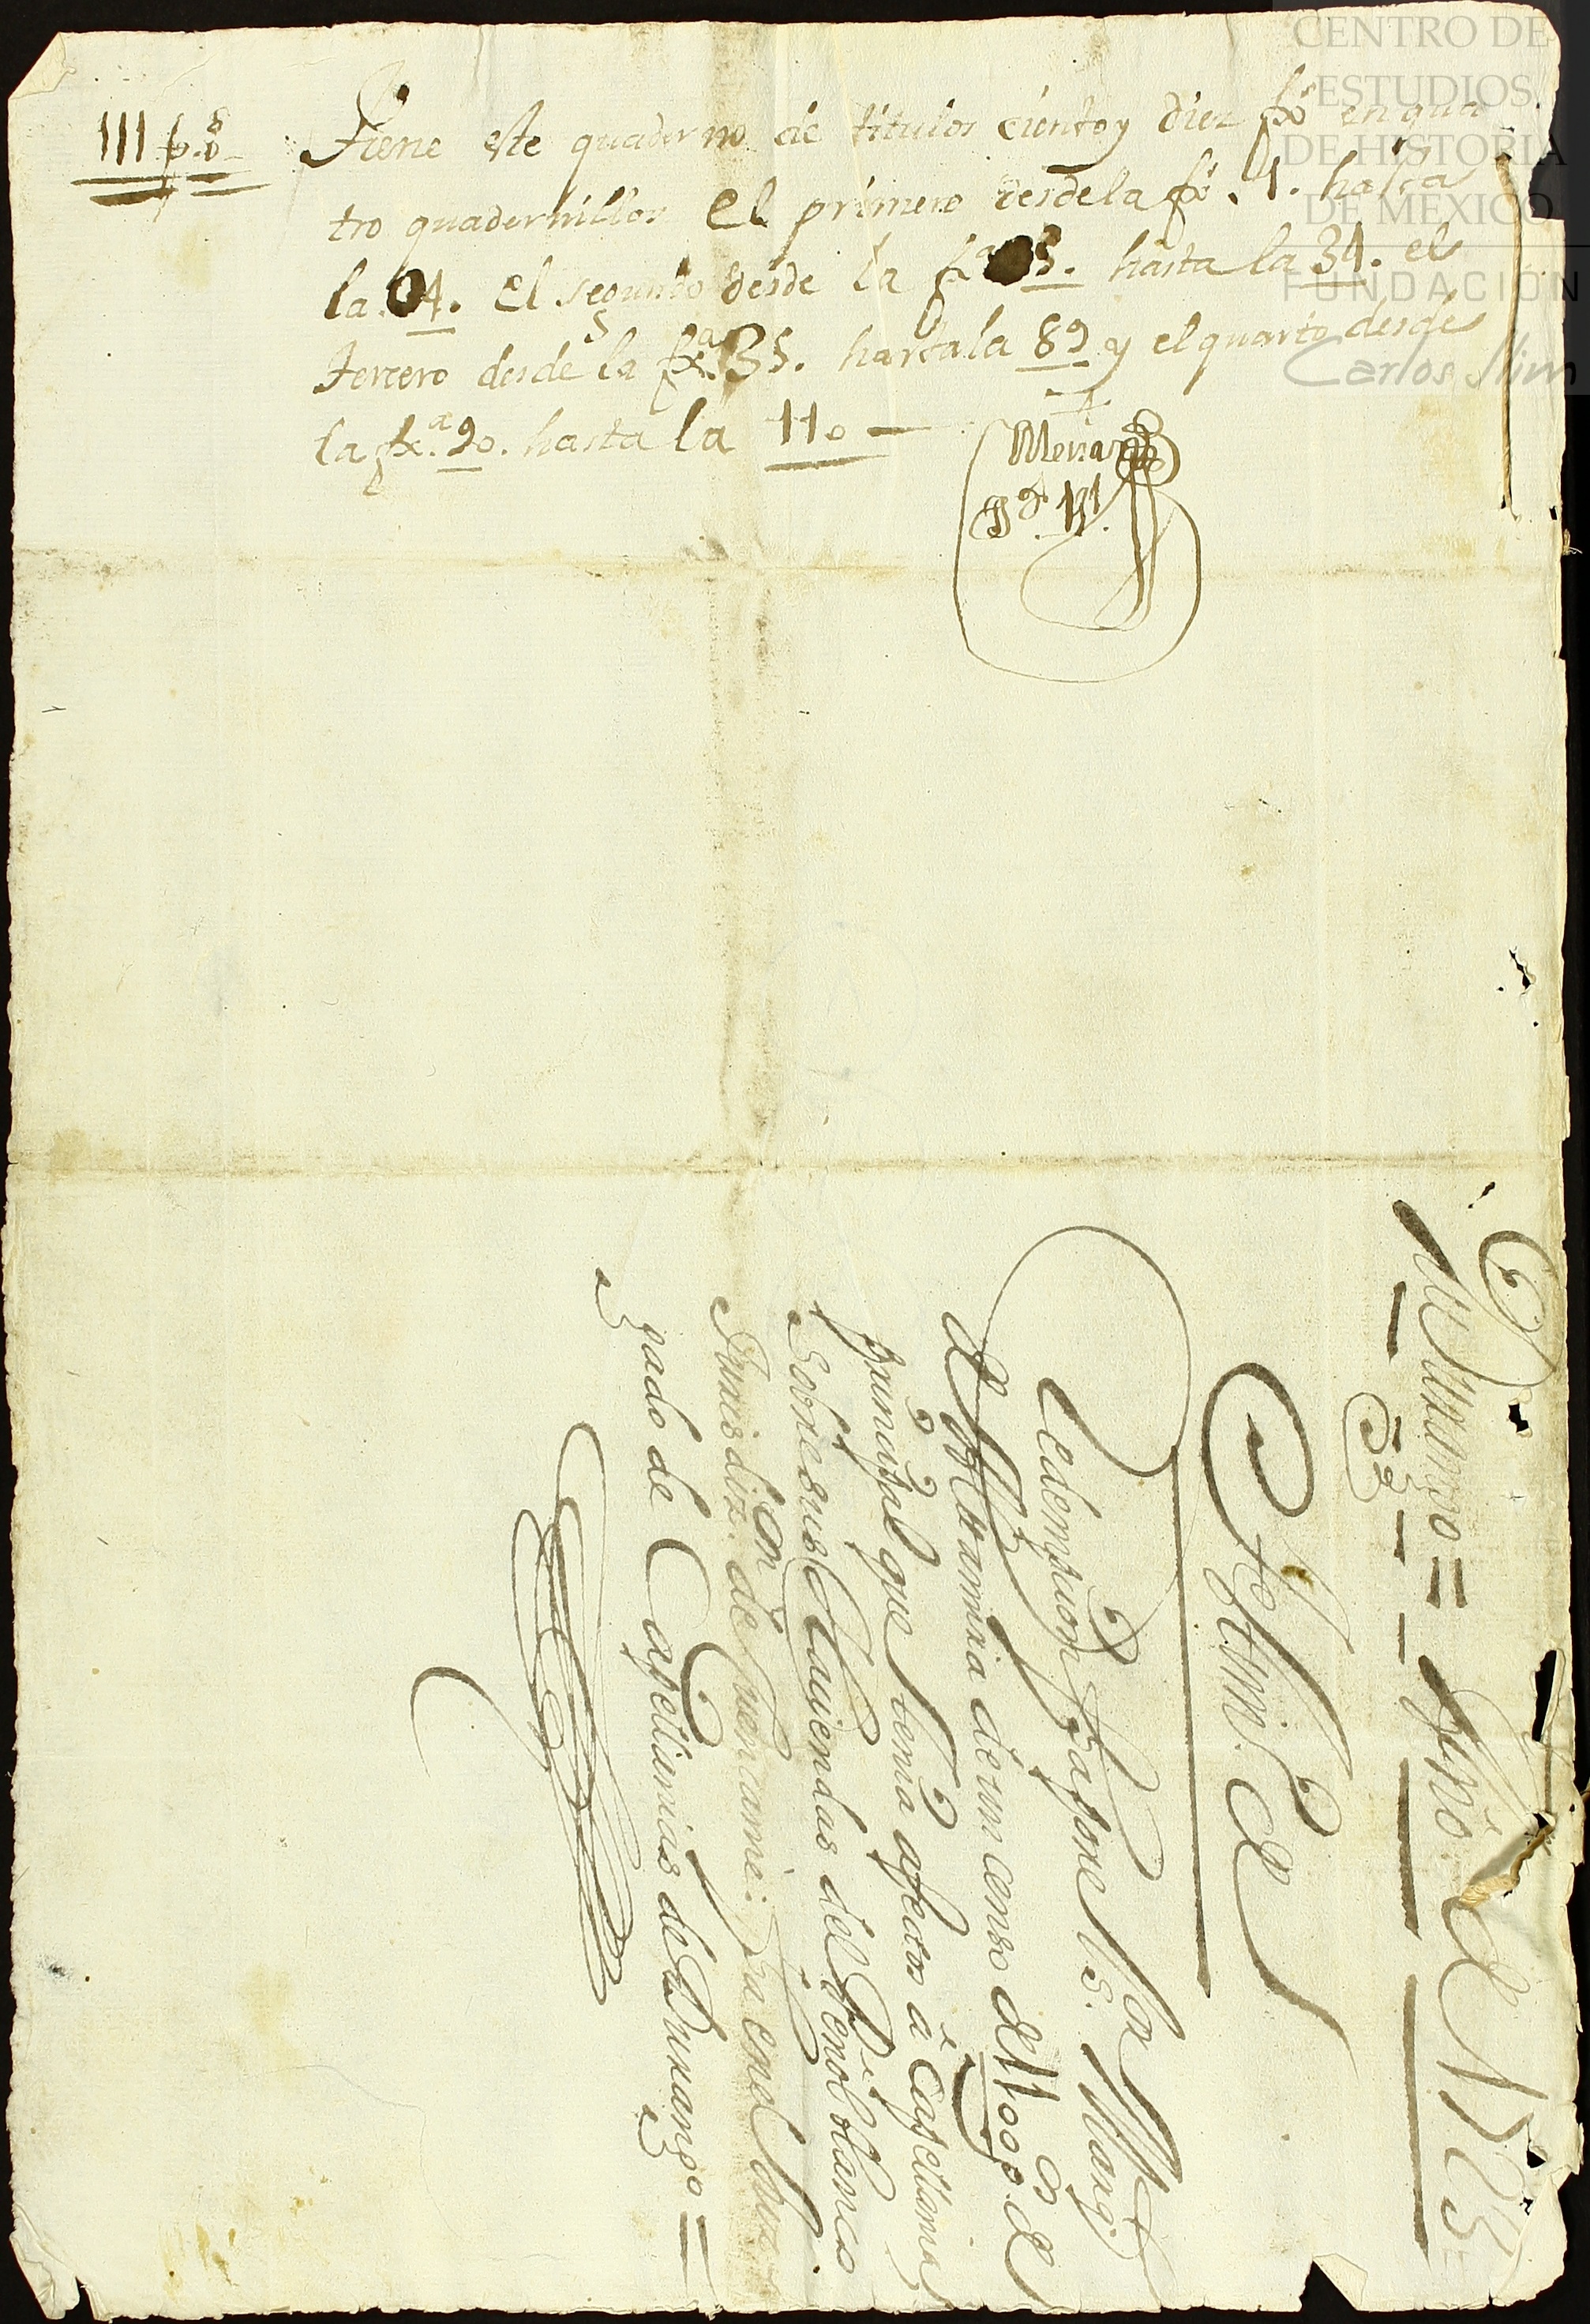 CENTRO DE
ESTUDIOS
DE HISTORIA
DE MEXICO
FUNDACIÓN
Carlos Slim
111 fo.s
Tiene este quaderno de titulos ciento y diez fo.s en qua
tro quadernillos el primero desde la fo. 1. hasta
la 04. el segundo desde la fx.a 05. hasta la 34. el
tercero desde la fx.a 35. hasta la 89 y el quarto desde
la fx.a 90. hasta la 110
111.
Durango = Año de
Testim.o de
Redempcion fha por el S.r Marq.s
de Altamira de un censo de 1100 p.s de
principal que tenia afectos à Capellania
Sobre sus Haciendas del Peñol blanco
en Jurisdiz.n de Cuencamé: Fha en el Juz
gado de Capellanias de Durango =